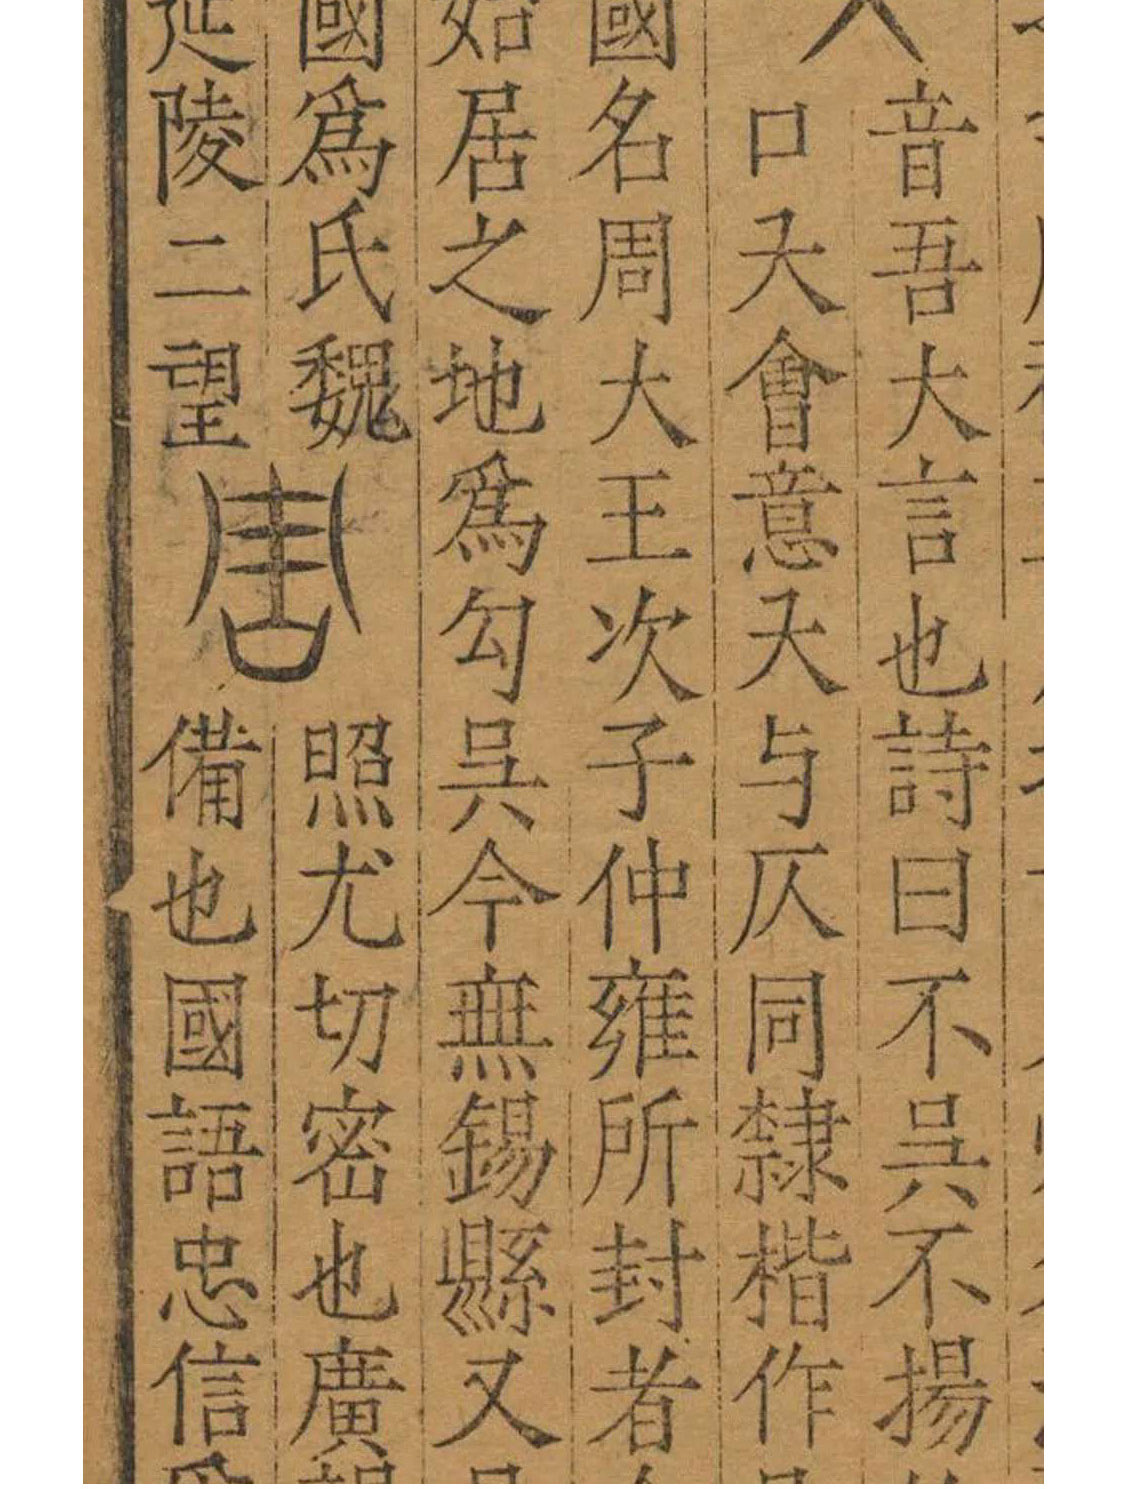 音吾大言也詩曰不吳不揚
口夨會意夨与仄同隸楷作
國名周大王次子仲雍所封者
始居之地爲勾吳今無錫縣又
國爲氏魏
延陵二望
周
照尤切密也廣韻
備也國語忠信爲